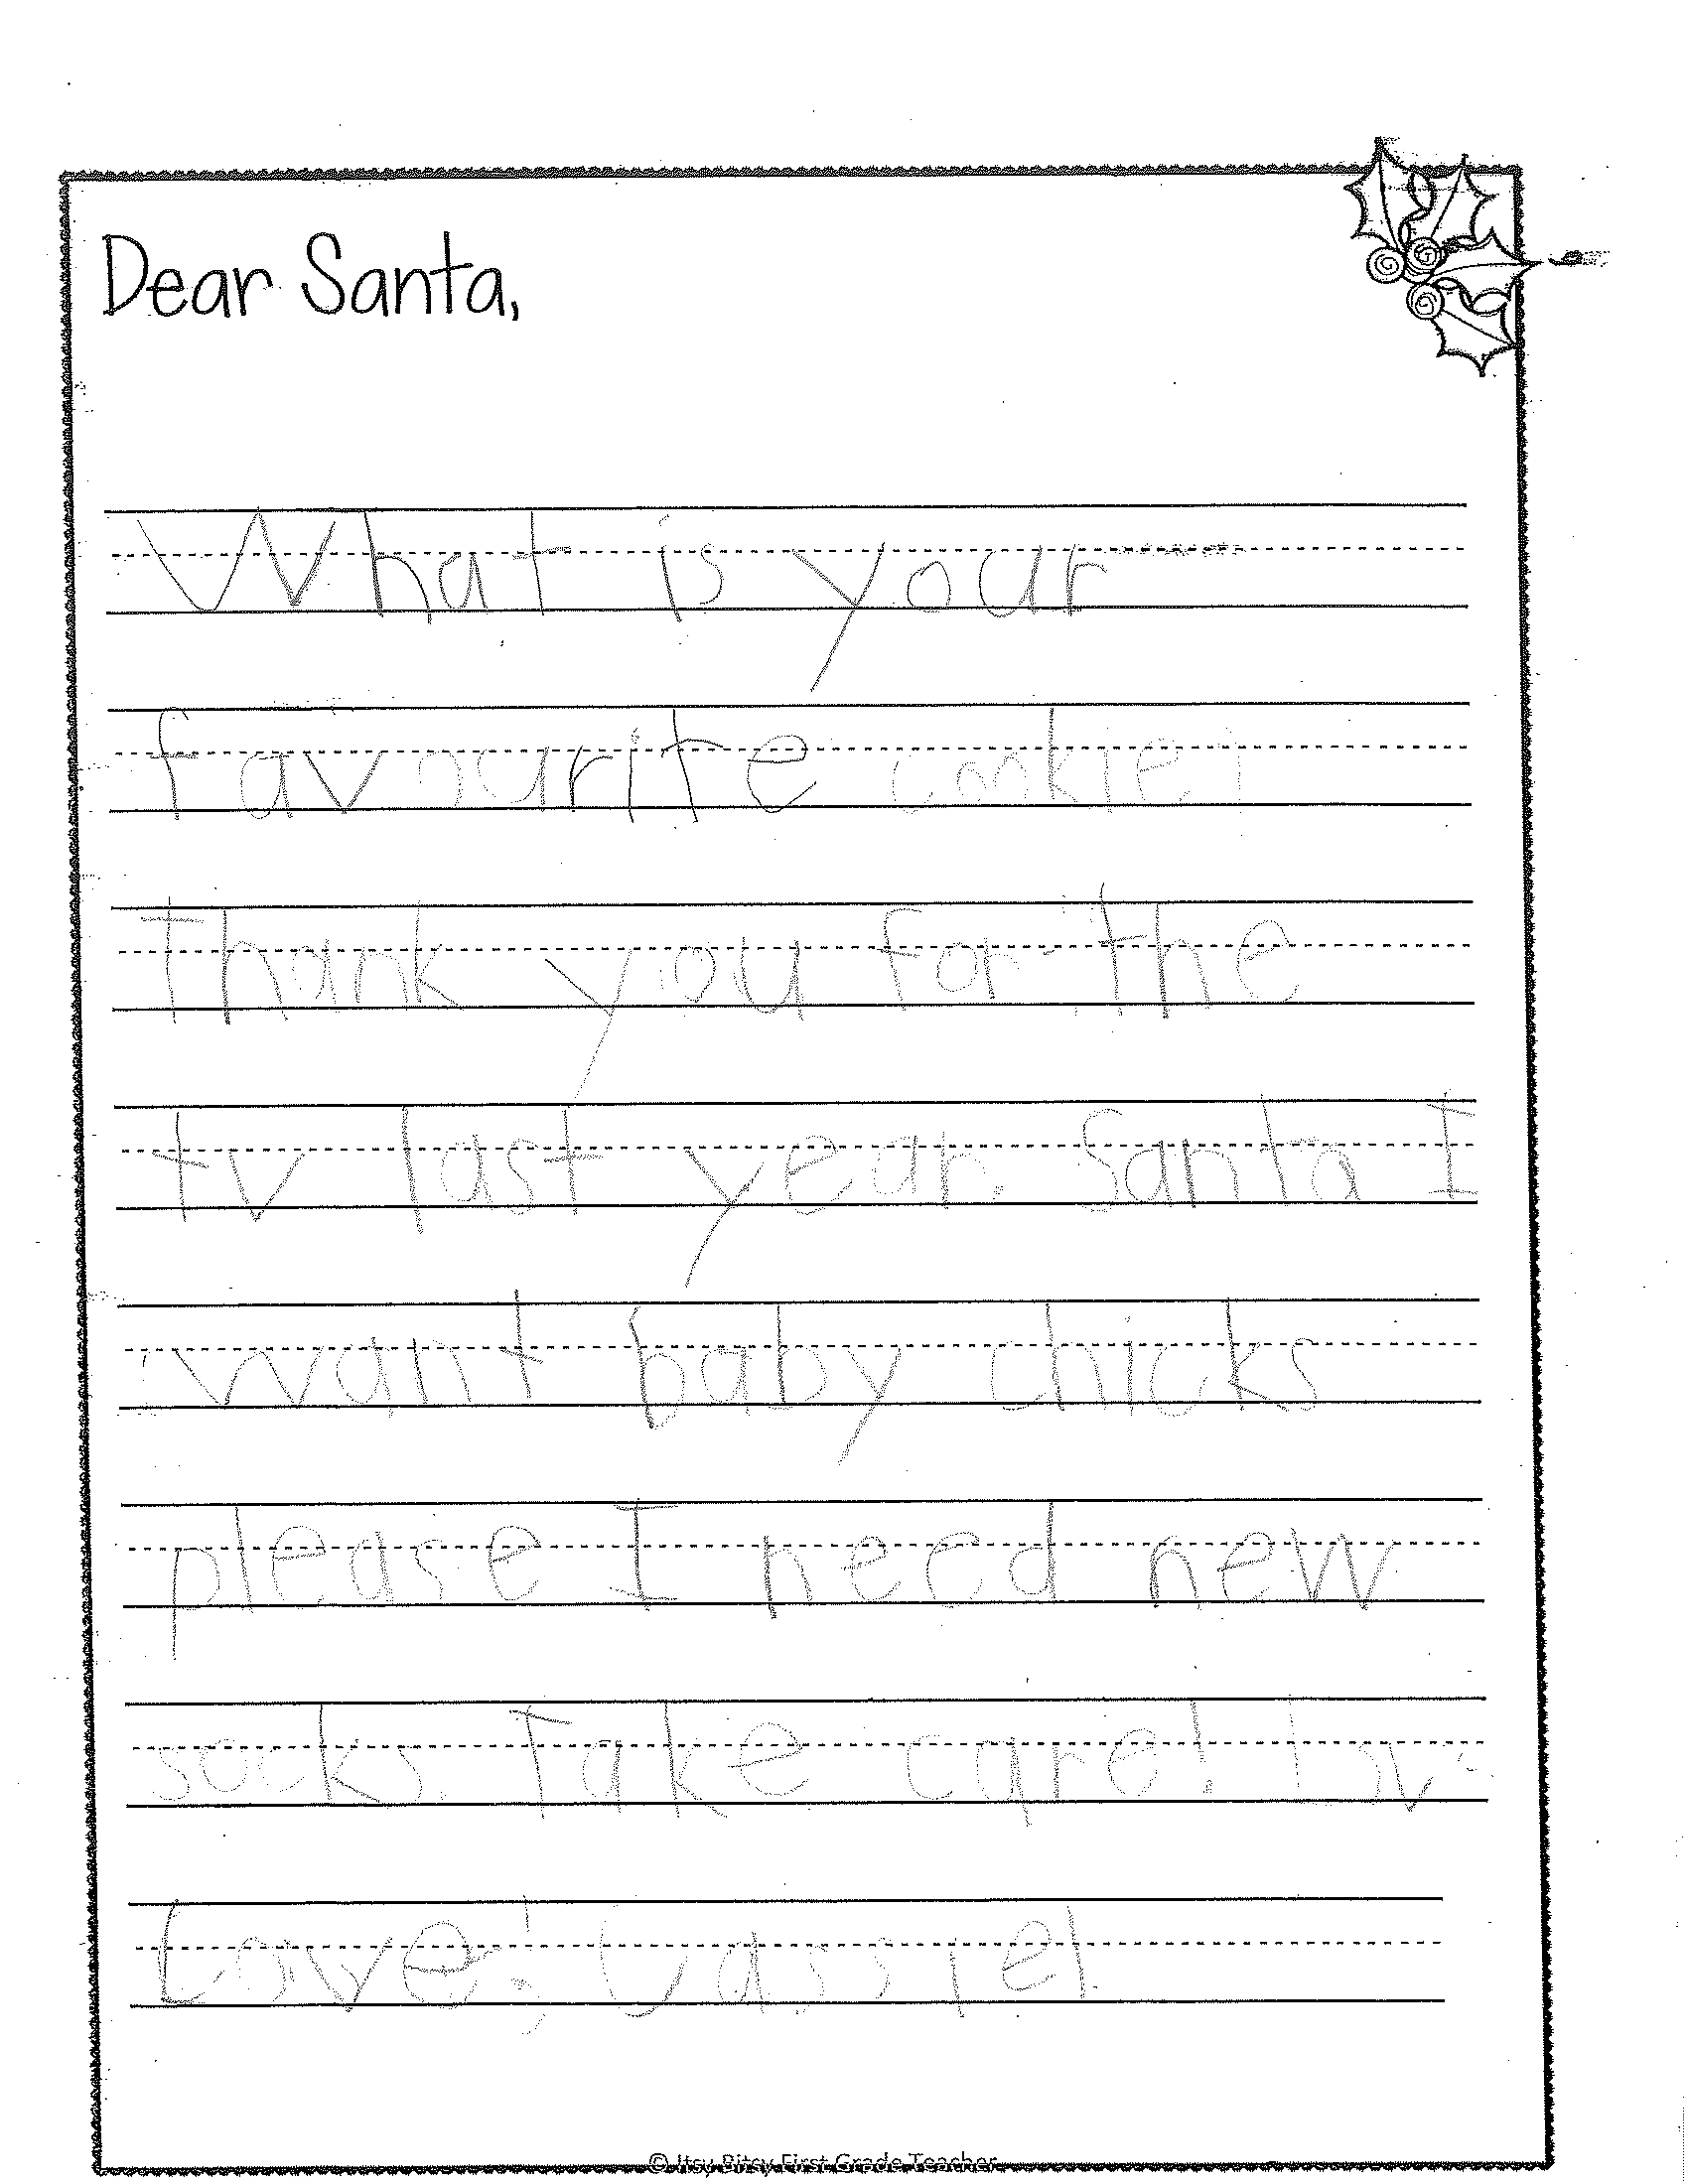 Dear Santa,
What is your
favourite cookie?
Thank you for the
tv last year. Santa I
want baby chicks
please I need new
socks. Take care!
Love, Cassie
© Itsy Bitsy First Grade Teacher